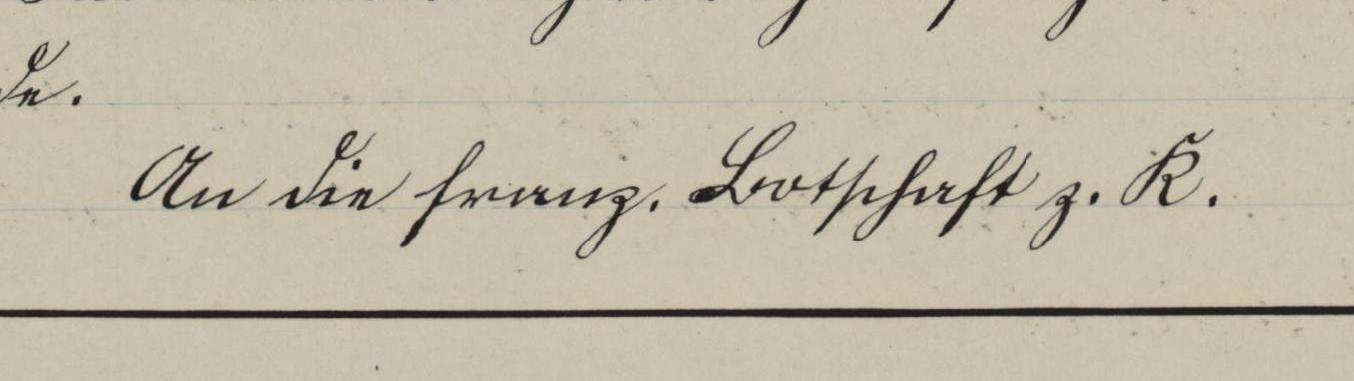 de.
An die franz. Botschaft z. K.